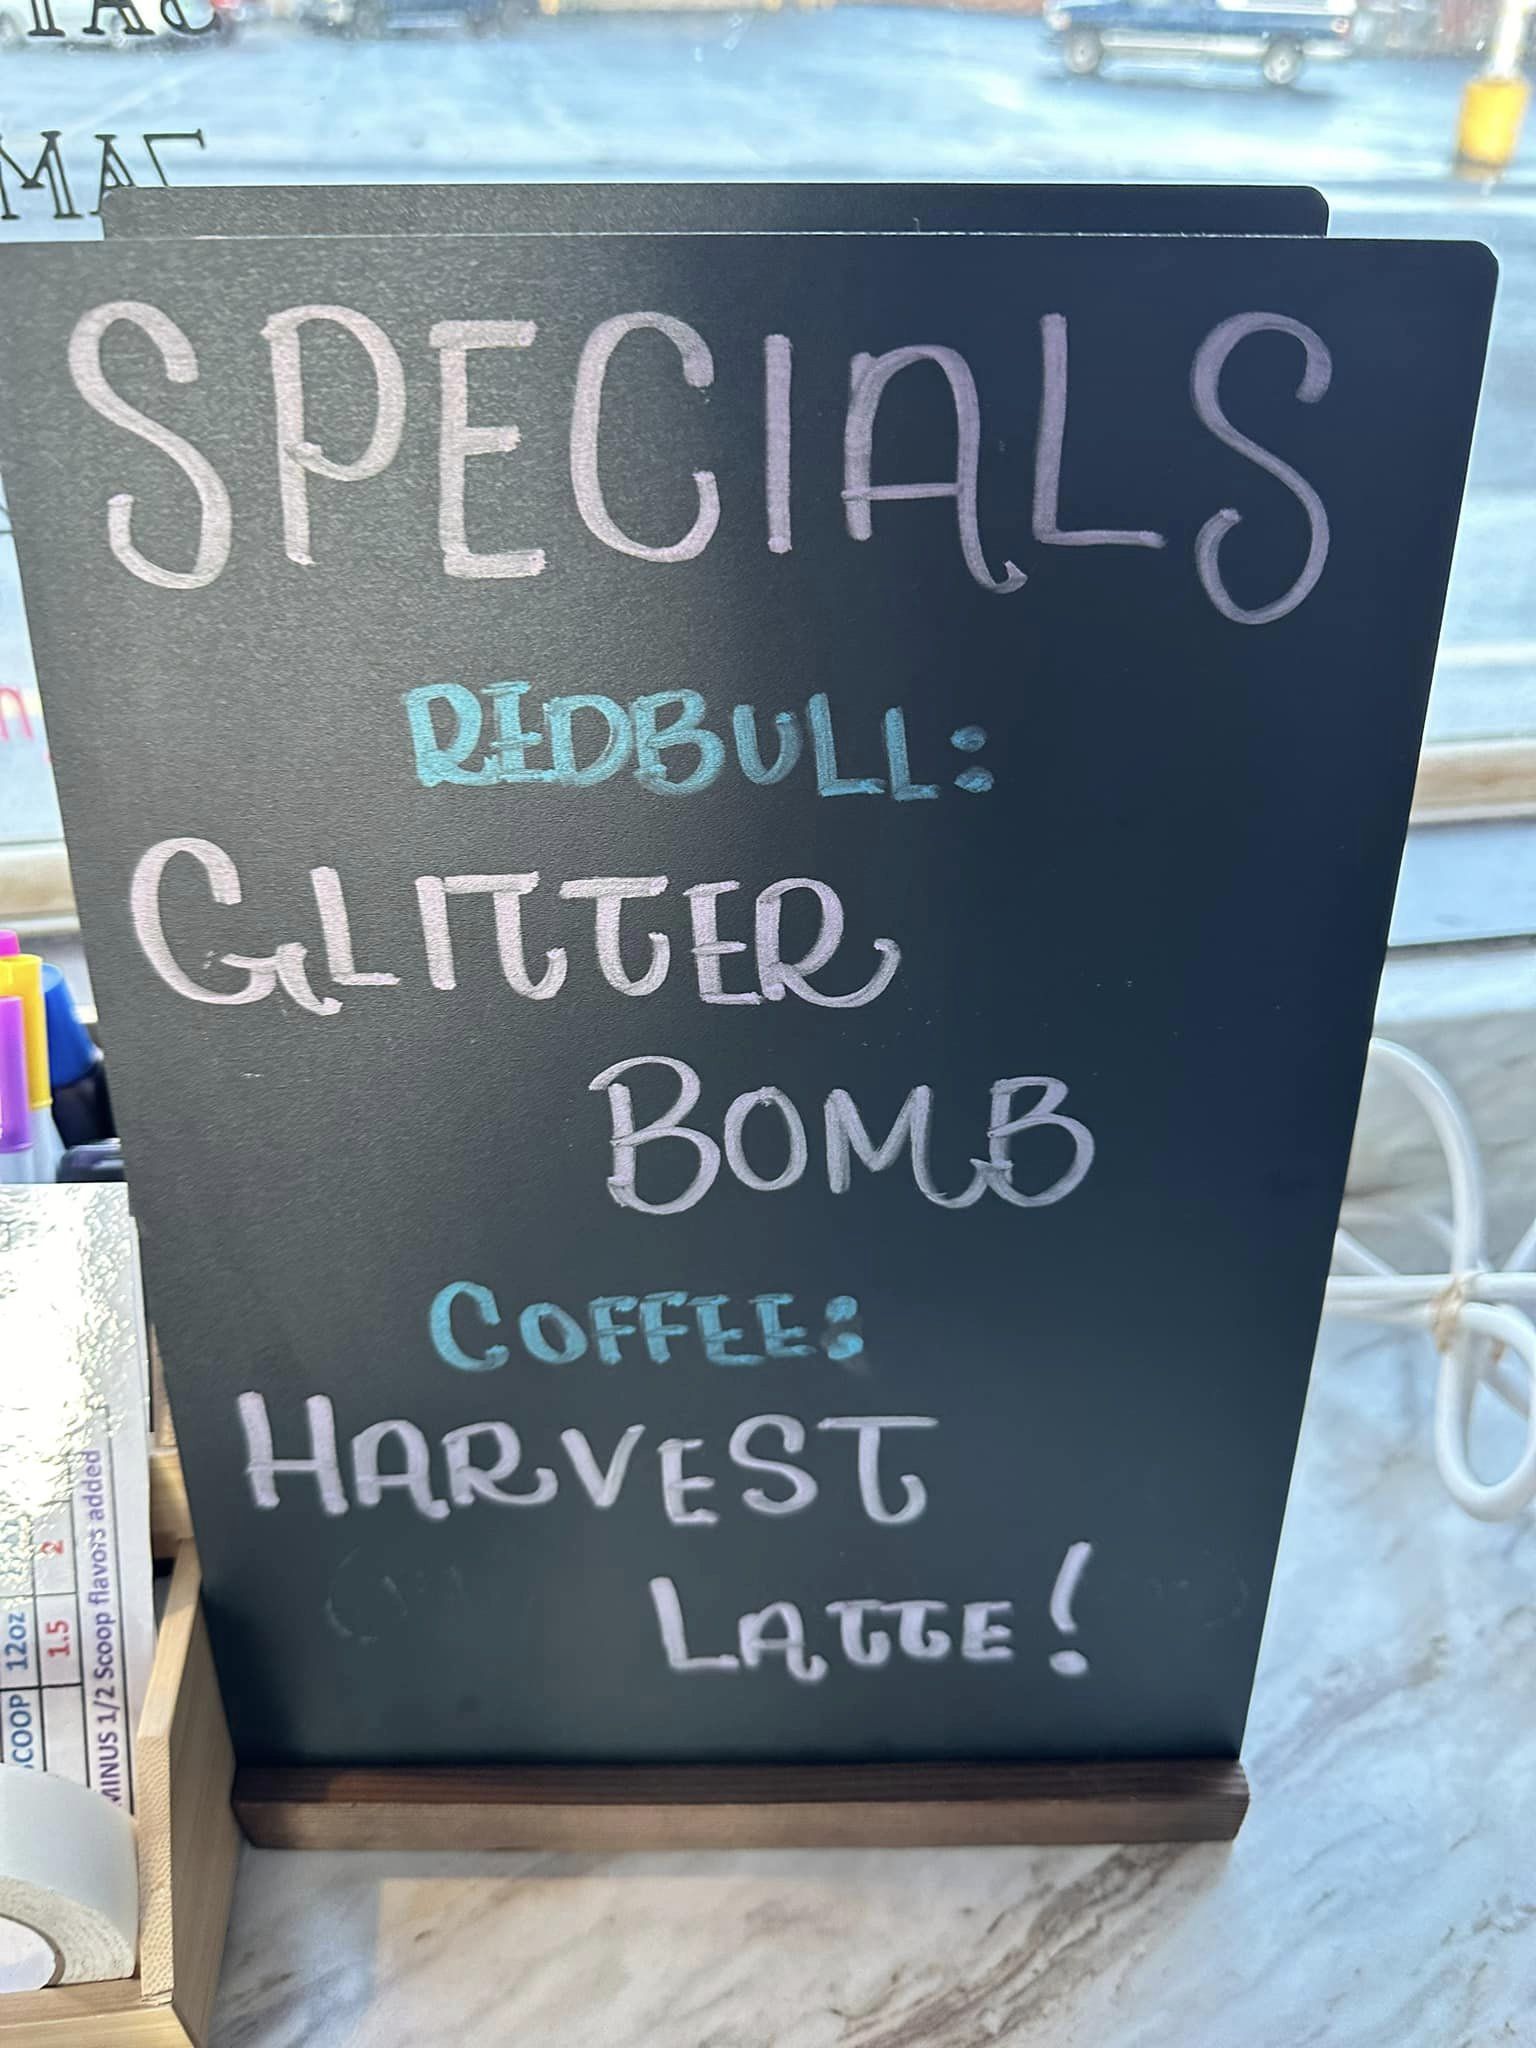 SAT
7AM
SPECIALS
REDBULL:
GLITTER
BOMB
COFFEE:
HARVEST
LATTE!
COOP 12oz
1.5 2
MINUS 1/2 Scoop flavors added